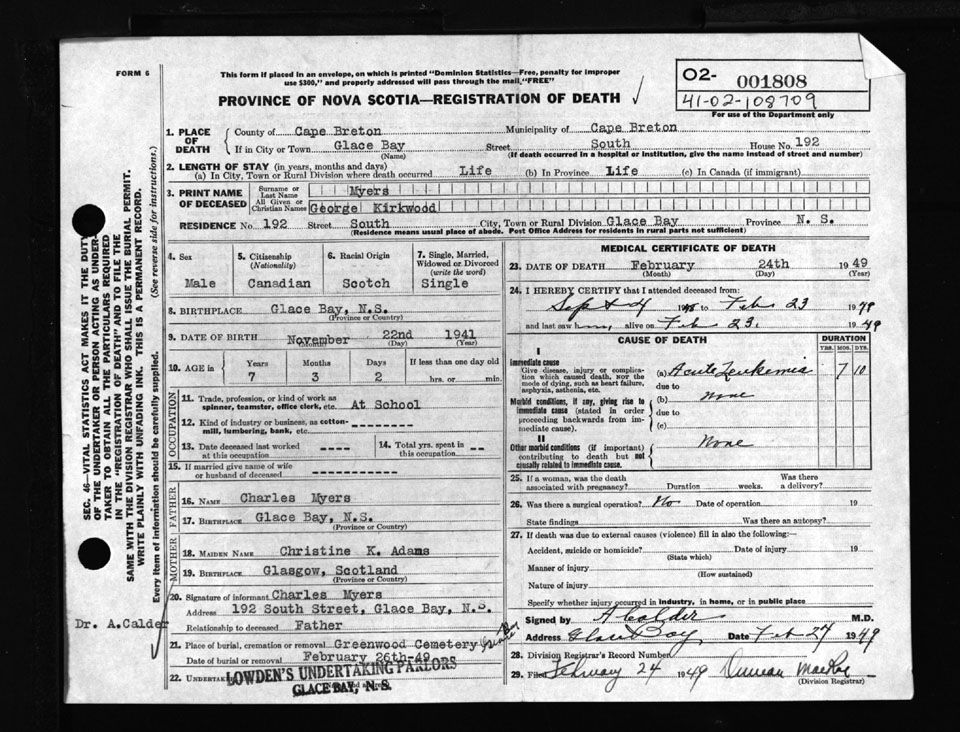 FORM 6
This form if placed in an envelope, on which is printed "Dominion Statistics—Free, penalty for improper
use $300," and properly addressed will pass through the mail "FREE"
PROVINCE OF NOVA SCOTIA—REGISTRATION OF DEATH
O2- 001808
41-02-108709
For use of the Department only
SEC. 46—VITAL STATISTICS ACT MAKES IT THE DUTY
OF THE UNDERTAKER OR PERSON ACTING AS UNDER-
TAKER TO OBTAIN ALL THE PARTICULARS REQUIRED
IN THE "REGISTRATION OF DEATH" AND TO FILE THE
SAME WITH THE DIVISION REGISTRAR WHO SHALL ISSUE THE BURIAL PERMIT.
WRITE PLAINLY WITH UNFADING INK. THIS IS A PERMANENT RECORD.
Every item of information should be carefully supplied. (See reverse side for instructions.)
1. PLACE OF DEATH
County of Cape Breton Municipality of Cape Breton
If in City or Town Glace Bay Street South House No. 192
(Name) (If death occurred in a hospital or institution, give the name instead of street and number)
2. LENGTH OF STAY (in years, months and days)
(a) In City, Town or Rural Division where death occurred Life (b) In Province Life (c) In Canada (if immigrant)
3. PRINT NAME OF DECEASED
Surname or Last Name Myers
All Given or Christian Names George Kirkwood
RESIDENCE No. 192 Street South City, Town or Rural Division Glace Bay Province N. S.
(Residence means usual place of abode. Post Office Address for residents in rural parts not sufficient)
4. Sex
Male
5. Citizenship
(Nationality)
Canadian
6. Racial Origin
Scotch
7. Single, Married,
Widowed or Divorced
(write the word)
Single
8. BIRTHPLACE Glace Bay, N.S.
(Province or Country)
9. DATE OF BIRTH November 22nd 1941
(Month) (Day) (Year)
10. AGE in Years Months Days If less than one day old
7 3 2 hrs. or min.
OCCUPATION
11. Trade, profession, or kind of work as
spinner, teamster, office clerk, etc. At School
12. Kind of industry or business, as cotton-
mill, lumbering, bank, etc.
13. Date deceased last worked
at this occupation
14. Total yrs. spent in
this occupation
15. If married give name of wife
or husband of deceased
FATHER
16. NAME Charles Myers
17. BIRTHPLACE Glace Bay, N.S.
(Province or Country)
MOTHER
18. MAIDEN NAME Christine K. Adams
19. BIRTHPLACE Glasgow, Scotland
(Province or Country)
20. Signature of informant Charles Myers
Address 192 South Street, Glace Bay, N.S.
Relationship to deceased Father
Dr. A.Calder
21. Place of burial, cremation or removal Greenwood Cemetery Glace Bay
Date of burial or removal February 26th-49
22. UNDERTAKER LOWDEN'S UNDERTAKING PARLORS
GLACE BAY, N. S.
MEDICAL CERTIFICATE OF DEATH
23. DATE OF DEATH February 24th 1949
(Month) (Day) (Year)
24. I HEREBY CERTIFY that I attended deceased from:
Sept 4 1948 to Feb 23 1949
and last saw him alive on Feb 23. 1949
CAUSE OF DEATH
DURATION
YRS. MOS. DYS.
I
Immediate cause
Give disease, injury or complica-
tion which caused death, not the
mode of dying, such as heart failure,
asphyxia, asthenia, etc.
(a) Acute Leukemia 7 10
due to
Morbid conditions, if any, giving rise to
immediate cause (stated in order
proceeding backwards from im-
mediate cause).
(b) None
due to
(c)
II
Other morbid conditions (if important)
contributing to death but not
causally related to immediate cause.
None
25. If a woman, was the death
associated with pregnancy? Duration weeks. Was there
a delivery?
26. Was there a surgical operation? No Date of operation 19
State findings Was there an autopsy?
27. If death was due to external causes (violence) fill in also the following:—
Accident, suicide or homicide? Date of injury 19
(State which)
Manner of injury
(How sustained)
Nature of injury
Specify whether injury occurred in industry, in home, or in public place
Signed by A Calder M.D.
Address Glace Bay Date Feb 27 1949
28. Division Registrar's Record Number
29. Filed February 24 1949 Duncan MacRae
(Division Registrar)